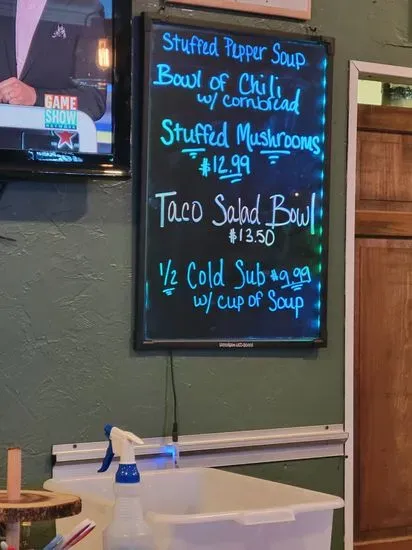 GAME
SHOW
NETWORK
Stuffed Pepper Soup
Bowl of Chili
w/ cornbread
Stuffed Mushrooms
$12.99
Taco Salad Bowl
$13.50
1/2 Cold Sub $9.99
w/ cup of Soup